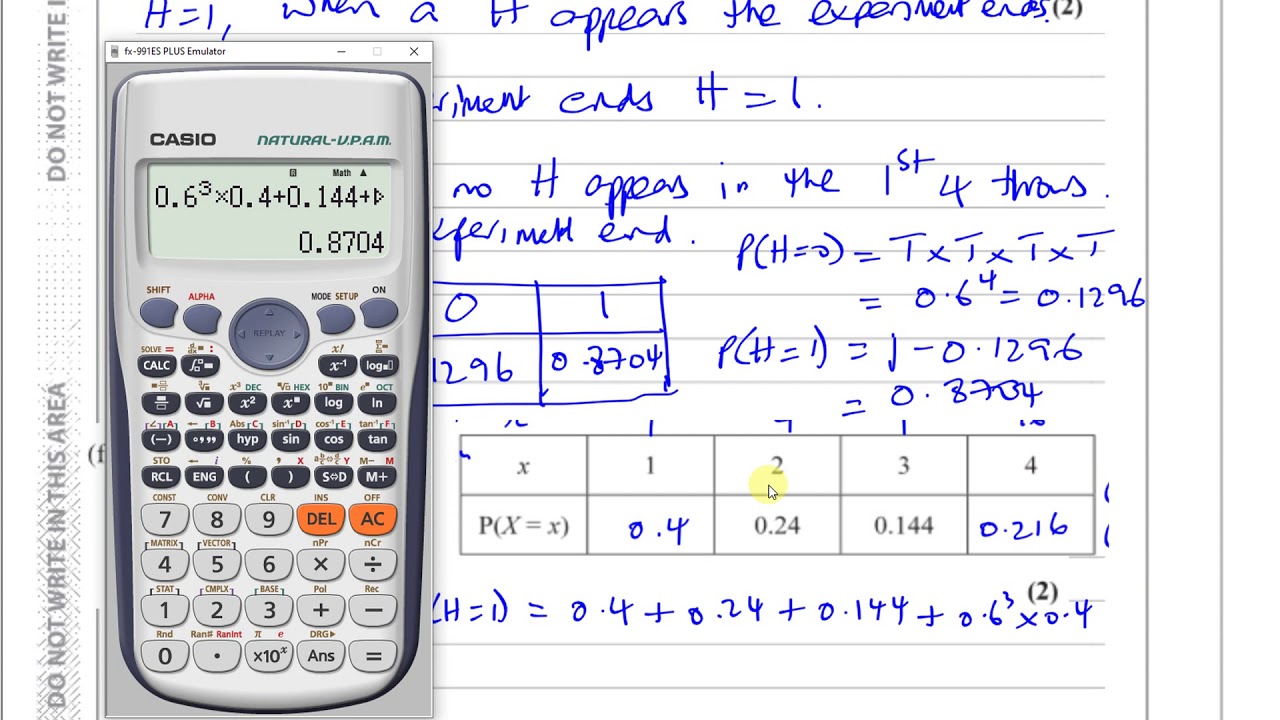 H=1, when a H appears the experiment ends. (2)
DO NOT WRITE I
DO NOT WRITE IN THIS AREA
fx-991ES PLUS Emulator
CASIO NATURAL-V.P.A.M.
Math
0.6³×0.4+0.144+
0.8704
SHIFT ALPHA REPLAY MODE SETUP ON
SOLVE = x! 
CALC x⁻¹ log
x³ DEC HEX 10ˣ BIN eˣ OCT
√ x² log ln
[A] [B] Abs [C] sin⁻¹ [D] cos⁻¹ [E] tan⁻¹ [F]
(−) hyp sin cos tan
STO i % , X Y M− M
RCL ENG ( ) S⇔D M+
CONST CONV CLR INS OFF
7 8 9 DEL AC
[MATRIX] [VECTOR] nPr nCr
4 5 6 × ÷
[STAT] [CMPLX] [BASE] Pol Rec
1 2 3 + −
Rnd Ran# RanInt π e DRG▶
0 . ×10ˣ Ans =
riment ends H = 1.
no H appears in the 1st 4 throws.
xperiment end.
P(H=0) = T×T×T×T
= 0.6⁴ = 0.1296
0 1
1296 0.8704
P(H=1) = 1 − 0.1296
= 0.8704
(f
x 1 2 3 4
P(X = x) 0.4 0.24 0.144 0.216
(2)
(H=1) = 0.4 + 0.24 + 0.144 + 0.6³ × 0.4